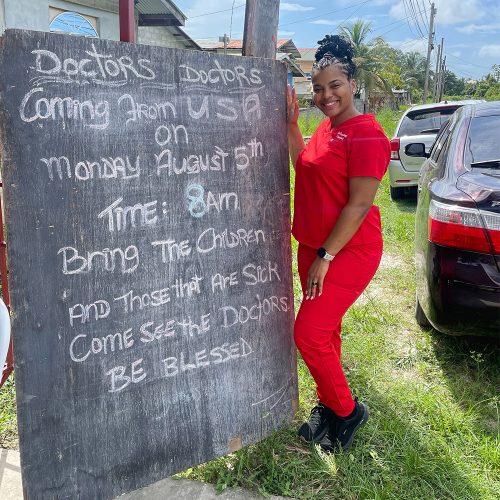 DOCTORS DOCTORS
Coming From USA
on
Monday August 5th
Time: 8AM
Bring The Children
And Those that Are Sick
Come See the Doctors
BE BLESSED